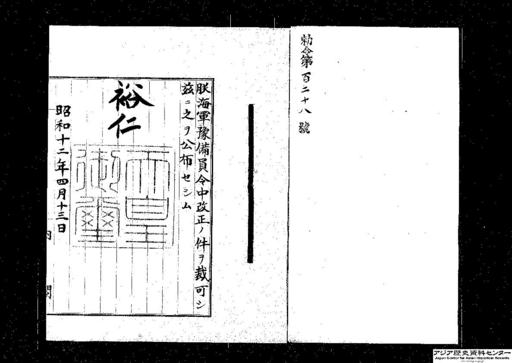 勅令第百二十八號
朕海軍豫備員令中改正ノ件ヲ裁可シ
茲ニ之ヲ公布セシム
裕仁
天皇
御璽
昭和十二年四月十三日
内閣
アジア歴史資料センター
Japan Center for Asian Historical Records